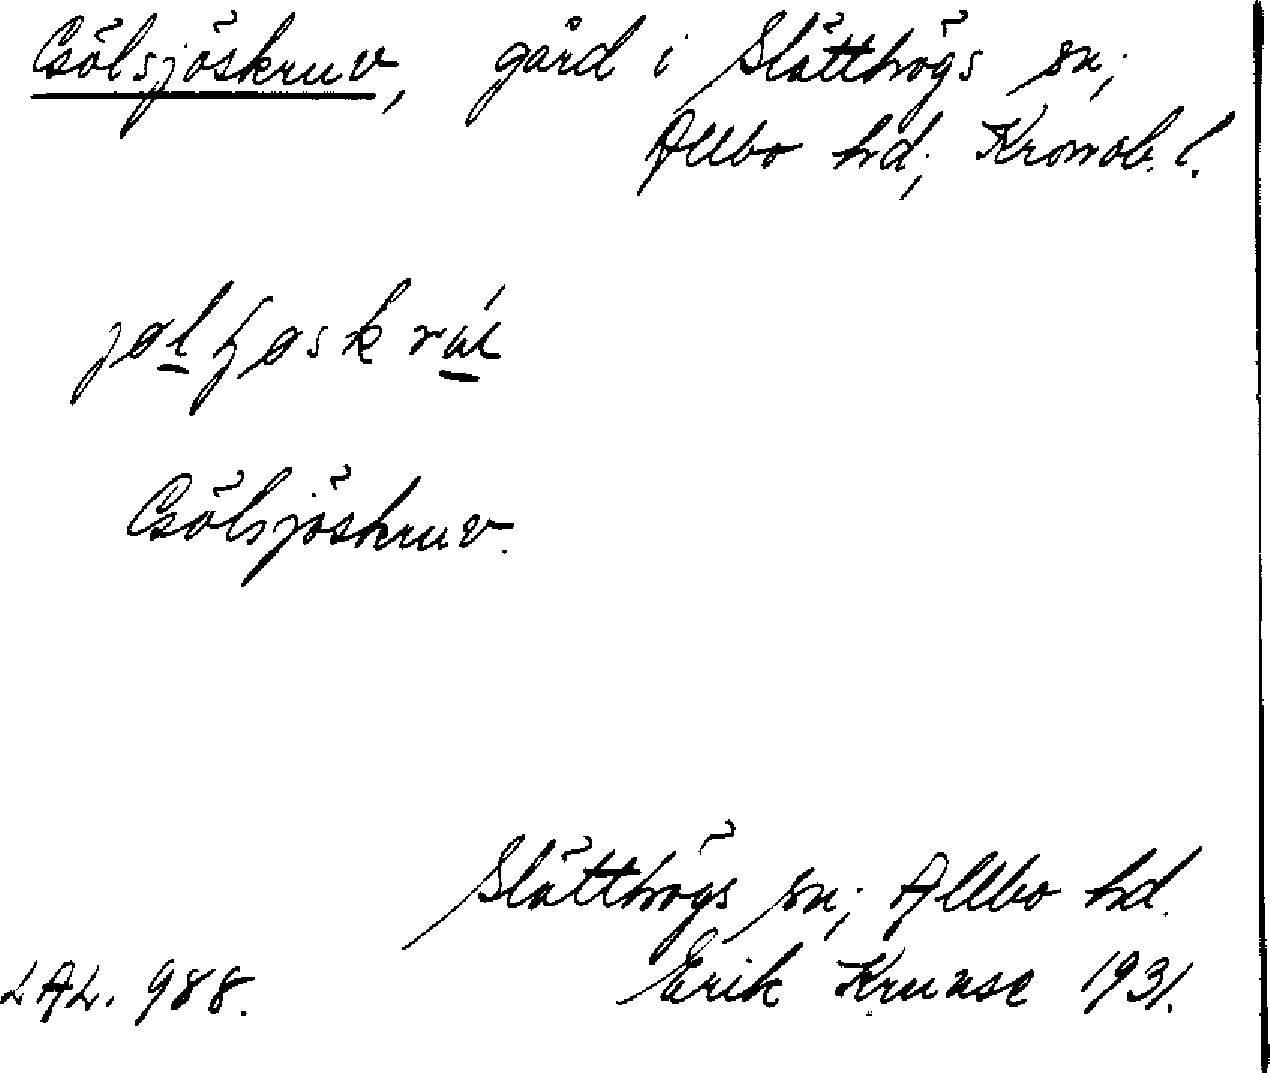 Gölsjöskruv, gård i Slätthögs sn;
Allbo hd; Kronob. l.
Gölsjöskruv.
Slätthögs sn; Allbo hd.
Erik Kruuse 1931.
LAL. 988.